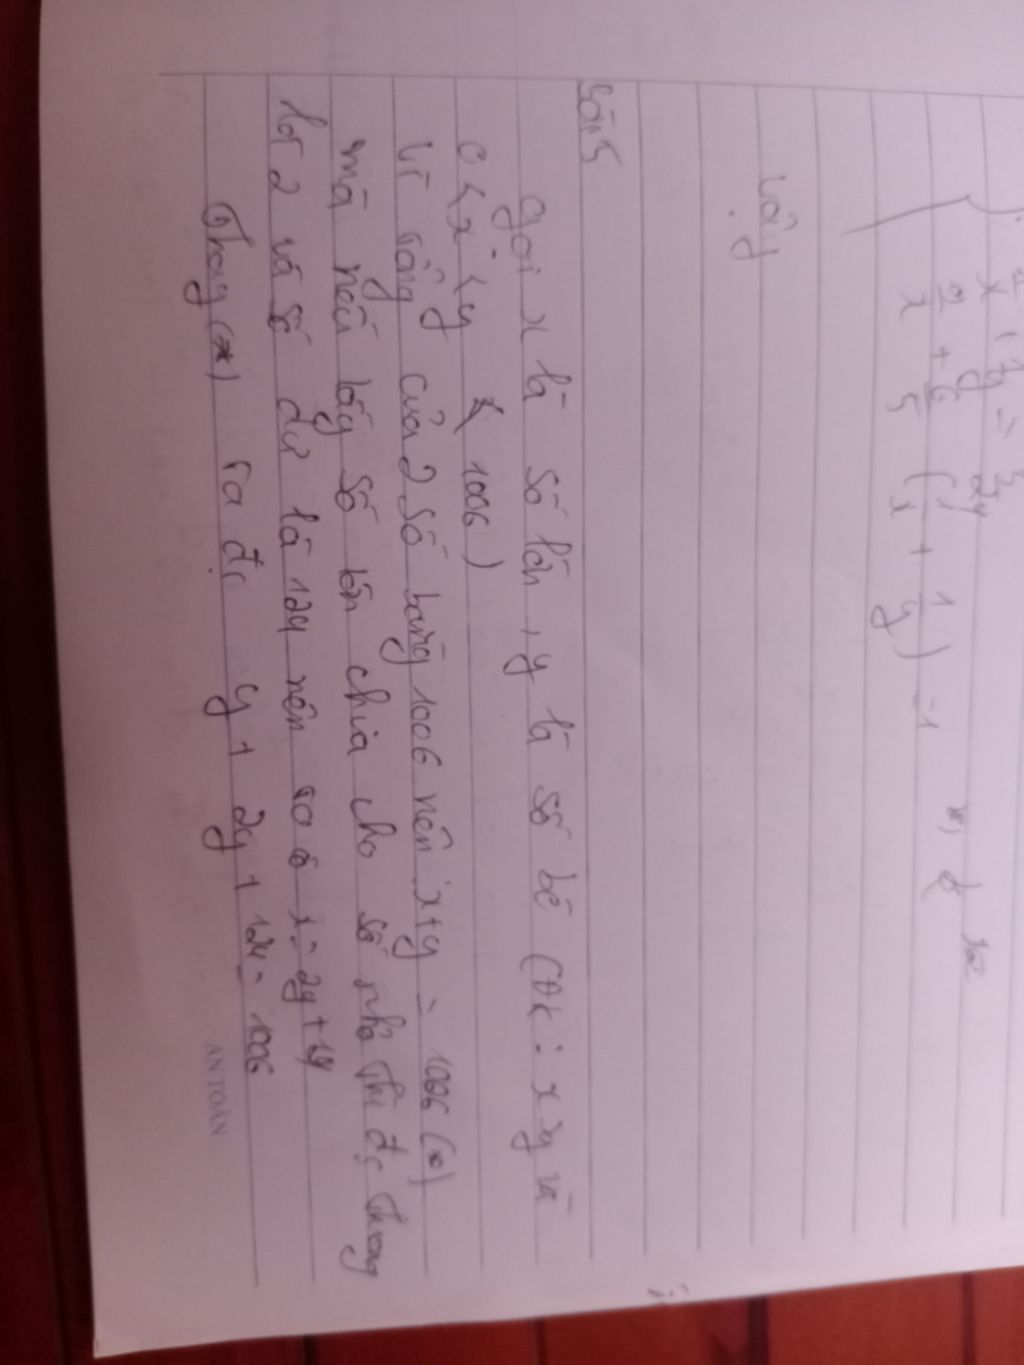 2/x + 6/5 (1/x + 1/y) = 1
Vậy
Bài 5
gọi x là số lớn, y là số bé (ĐK: x > y và
0 < x < y < 1006)
Vì tổng của 2 số bằng 1006 nên x + y = 1006 (*)
mà nếu lấy số lớn chia cho số nhỏ thì đc thương
là 2 và số dư là 124 nên ta có x = 2y + 124
Thay (*) ta đc y + 2y + 124 = 1006
AN TOÀN